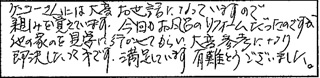 ケンコーさんには大変お世話になっていますので
組みを覚えています。今回もお風呂のリフォームということで
他の家のを見学に行かせてもらい大変参考になり
即決したしだいです。満足しています。有難うございました。